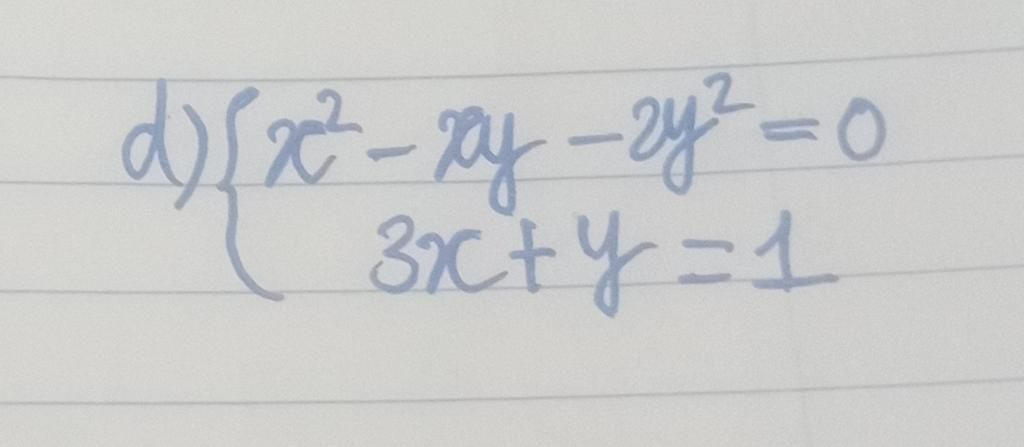 d) { x² - xy - 2y² = 0
3x + y = 1